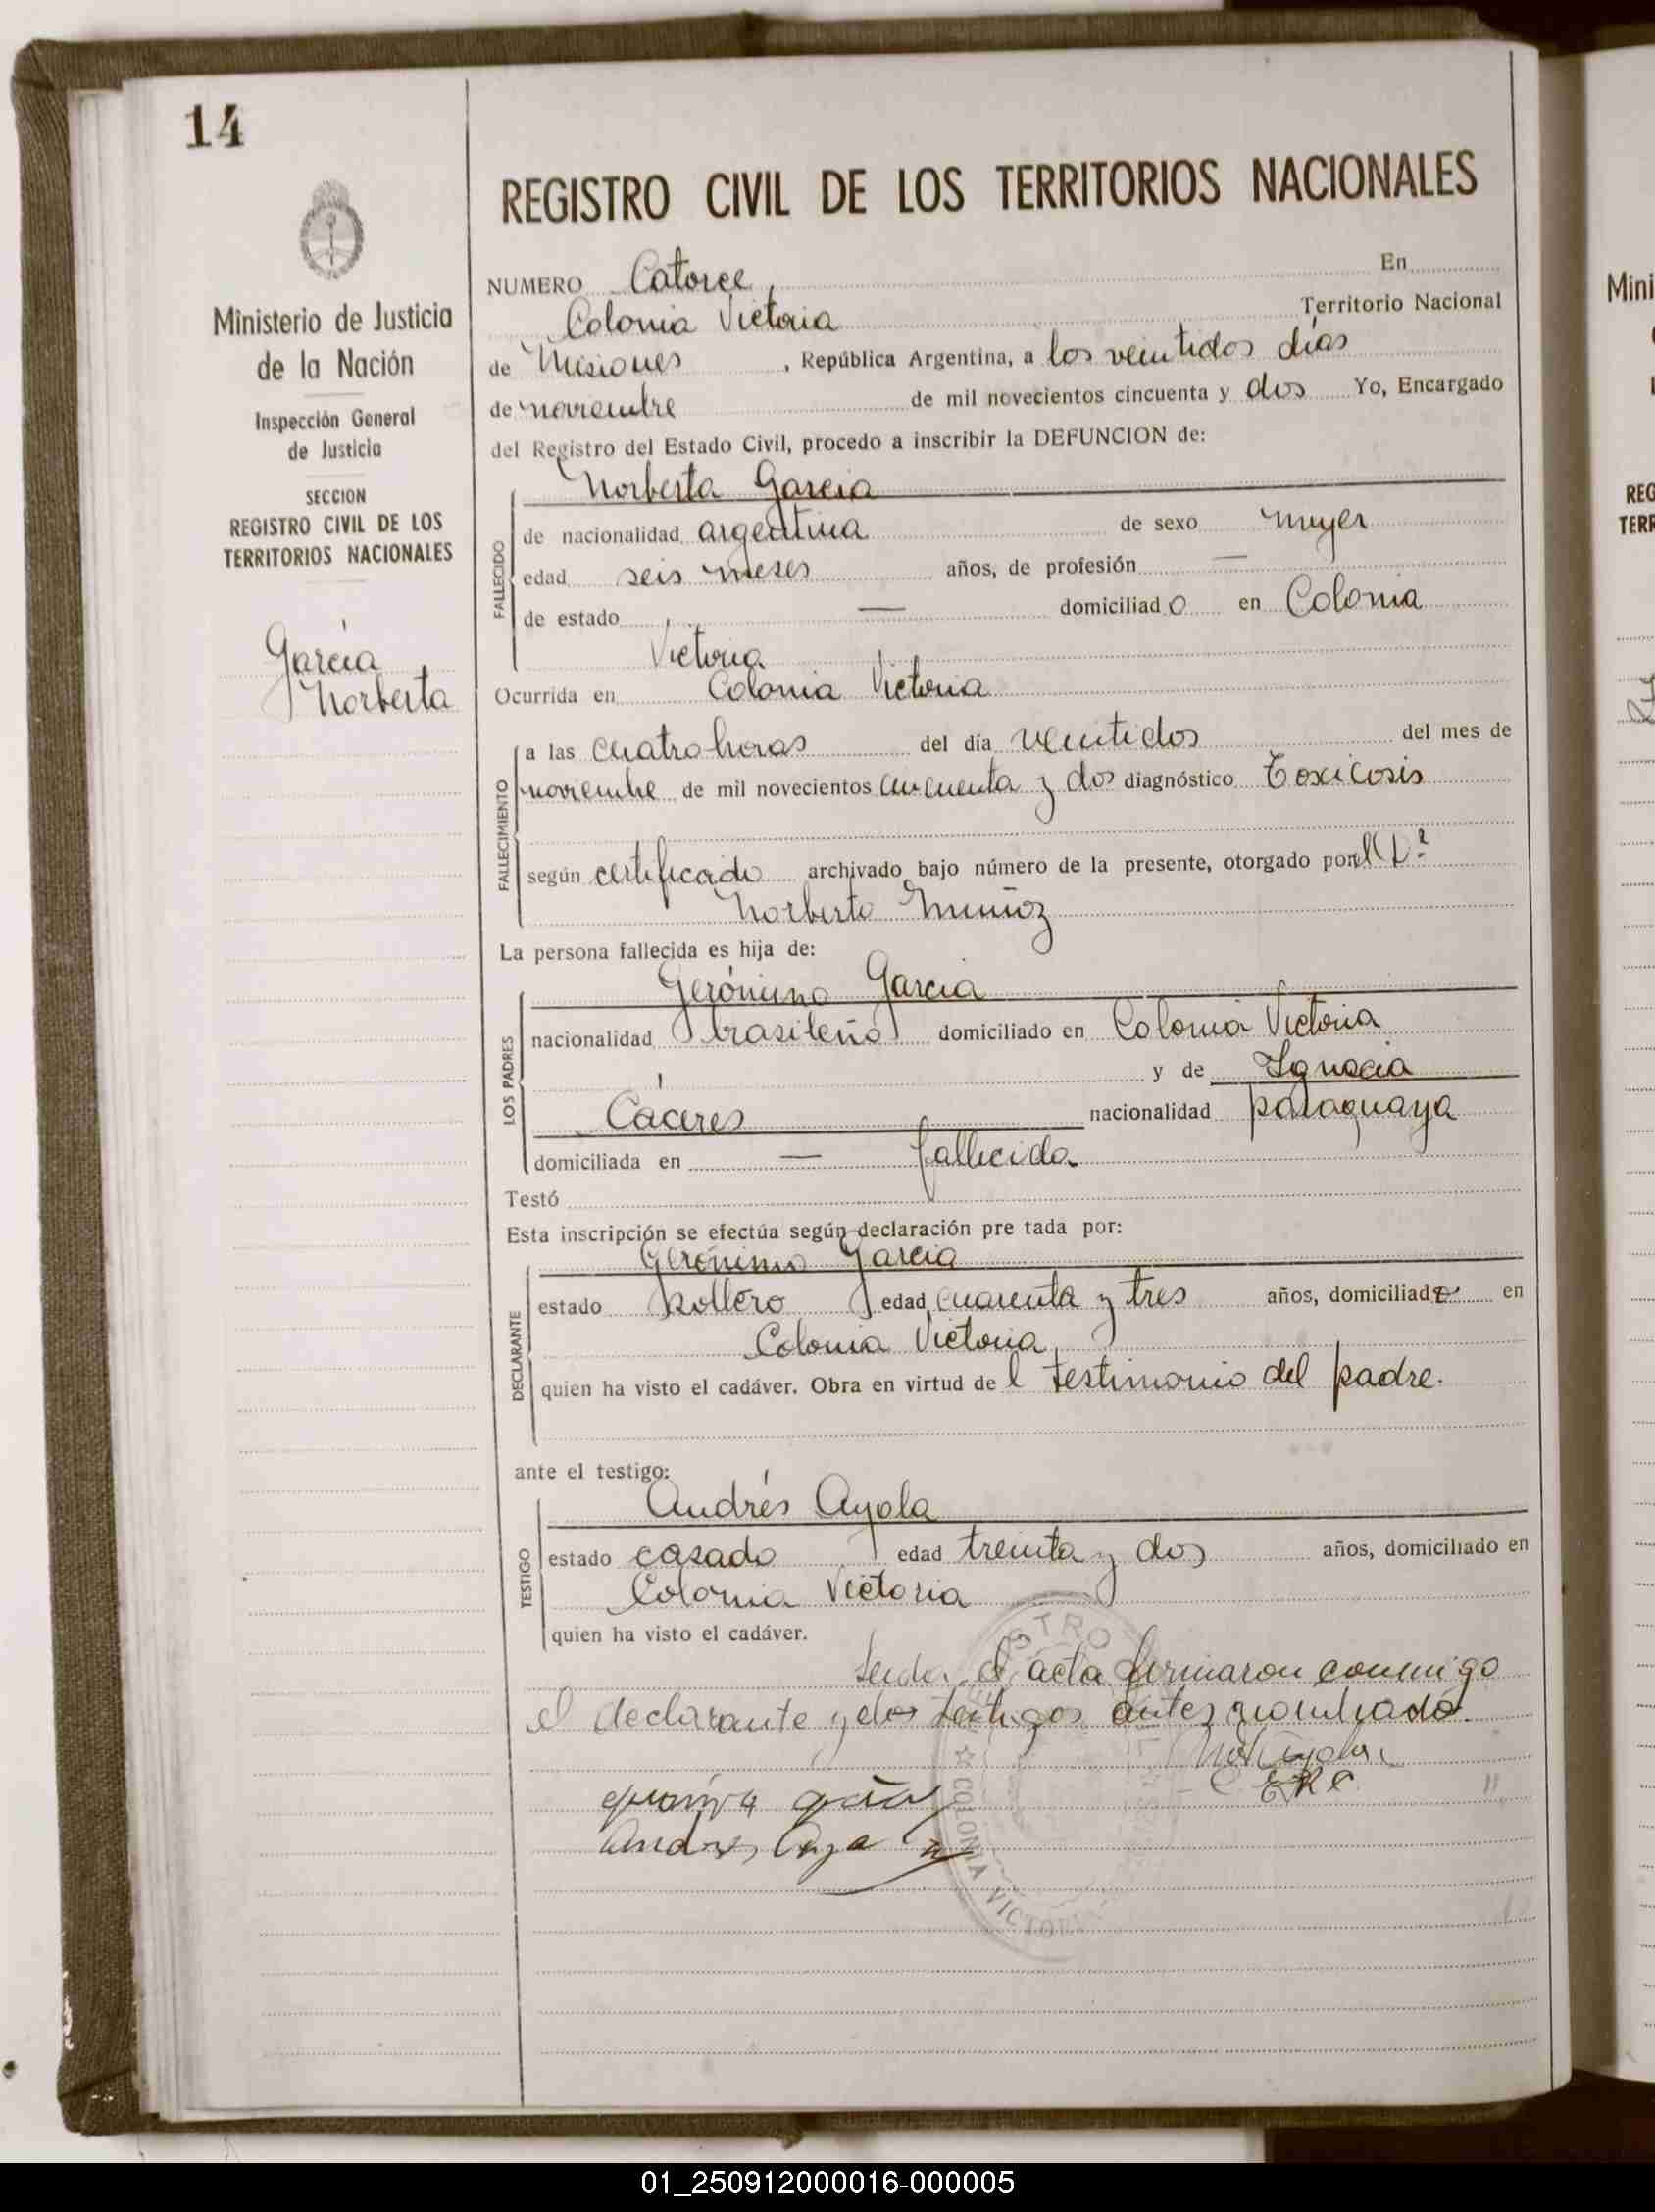 14
Ministerio de Justicia
de la Nación
Inspección General
de Justicia
SECCION
REGISTRO CIVIL DE LOS
TERRITORIOS NACIONALES
García
Norberta
REGISTRO CIVIL DE LOS TERRITORIOS NACIONALES
NUMERO Catorce, En
Colonia Victoria Territorio Nacional
de Misiones, República Argentina, a los veintidos días
de noviembre de mil novecientos cincuenta y dos Yo, Encargado
del Registro del Estado Civil, procedo a inscribir la DEFUNCION de:
Norberta García
FALLECIDO
de nacionalidad argentina de sexo mujer
edad seis meses años, de profesión —
de estado — domiciliado en Colonia
Victoria
Ocurrida en Colonia Victoria
FALLECIMIENTO
a las cuatro horas del día veintidos del mes de
noviembre de mil novecientos cincuenta y dos diagnóstico Toxicosis
según certificado archivado bajo número de la presente, otorgado por el Dr
Norberto Muñoz
La persona fallecida es hija de:
LOS PADRES
Gerónimo García
nacionalidad brasileño domiciliado en Colonia Victoria
y de Ignacia
Cáceres nacionalidad paraguaya
domiciliada en — fallecida
Testó
Esta inscripción se efectúa según declaración pre tada por:
DECLARANTE
Gerónimo García
estado soltero edad cuarenta y tres años, domiciliado en
Colonia Victoria
quien ha visto el cadáver. Obra en virtud del testimonio del padre.
ante el testigo:
TESTIGO
Andrés Ayala
estado casado edad treinta y dos años, domiciliado en
Colonia Victoria
quien ha visto el cadáver.
Leida el acta firmaron conmigo
el declarante y testigos antes nombrado
COLONIA VICTORIA
Mini
REG
TERR
01_250912000016-000005